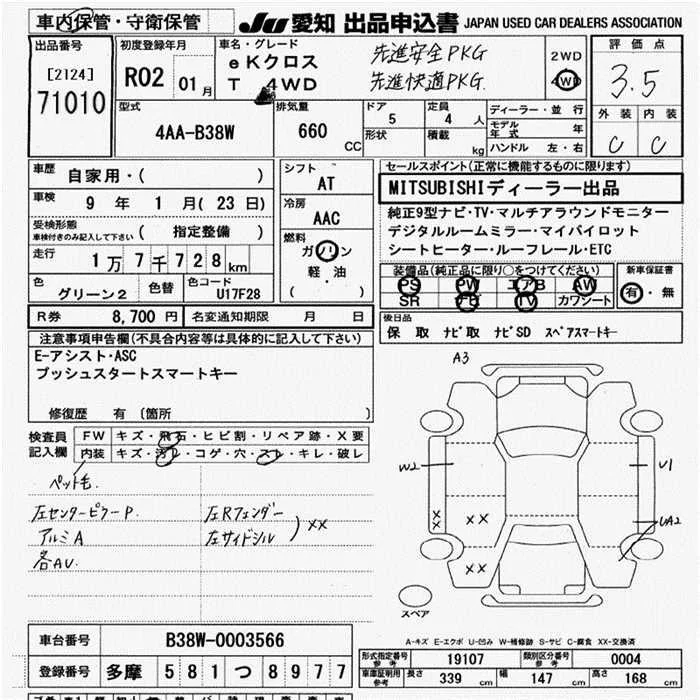 車内保管・守衛保管
JU 愛知 出品申込書 JAPAN USED CAR DEALERS ASSOCIATION
出品番号
[2124]
71010
初度登録年月
R02 01月
車名・グレード
eKクロス
T 4WD
先進安全PKG
先進快適PKG.
2WD
4WD
評価点
3.5
外装 内装
C C
型式
4AA-B38W
排気量
660 CC
ドア
5
形状
定員
4 人
積載
kg
ディーラー・並行
モデル年式 年
ハンドル 左・右
車歴
自家用・( )
車検
9 年 1 月(23 日)
受検形態
車検付きのみ記入して下さい
( 指定整備 )
走行
1万7千728km
色
グリーン2
色替
色コード
U17F28
シフト
AT
冷房
AAC
燃料
ガソリン
軽・油
( )
セールスポイント(正常に機能するものに限ります)
MITSUBISHIディーラー出品
純正9型ナビ・TV・マルチアラウンドモニター
デジタルルームミラー・マイパイロット
シートヒーター・ルーフレール・ETC
装備品(純正品に限り○をつけてください)
PS PW エアB AW
SR ナビ TV カワシート
新車保証書
有・無
R券 8,700円
名変通知期限 月 日
後日品
保 取 ナビ取 ナビSD スペアスマートキー
注意事項申告欄(不具合内容等は具体的に記入して下さい)
E-アシスト・ASC
プッシュスタートスマートキー
修復歴 有 〔箇所 〕
検査員記入欄
FW キズ・飛石・ヒビ割・リペア跡・X要
内装 キズ・汚レ・コゲ・穴・スレ・キレ・破レ
ペット毛.
左センターピラーP.
アルミA
各AU.
左Rフェンダー
左サイドシル
)××
A3
W2
U1
UA2
××
××
××
スペア
A-キズ E-エクボ U-凹み W-補修跡 S-サビ C-腐食 XX-交換済
車台番号
B38W-0003566
登録番号
多摩 581 つ 8977
形式指定番号
参考
19107
類別区分番号
参考
0004
車庫証明用
参考
長さ
339 cm
幅
147 cm
高さ
168 cm